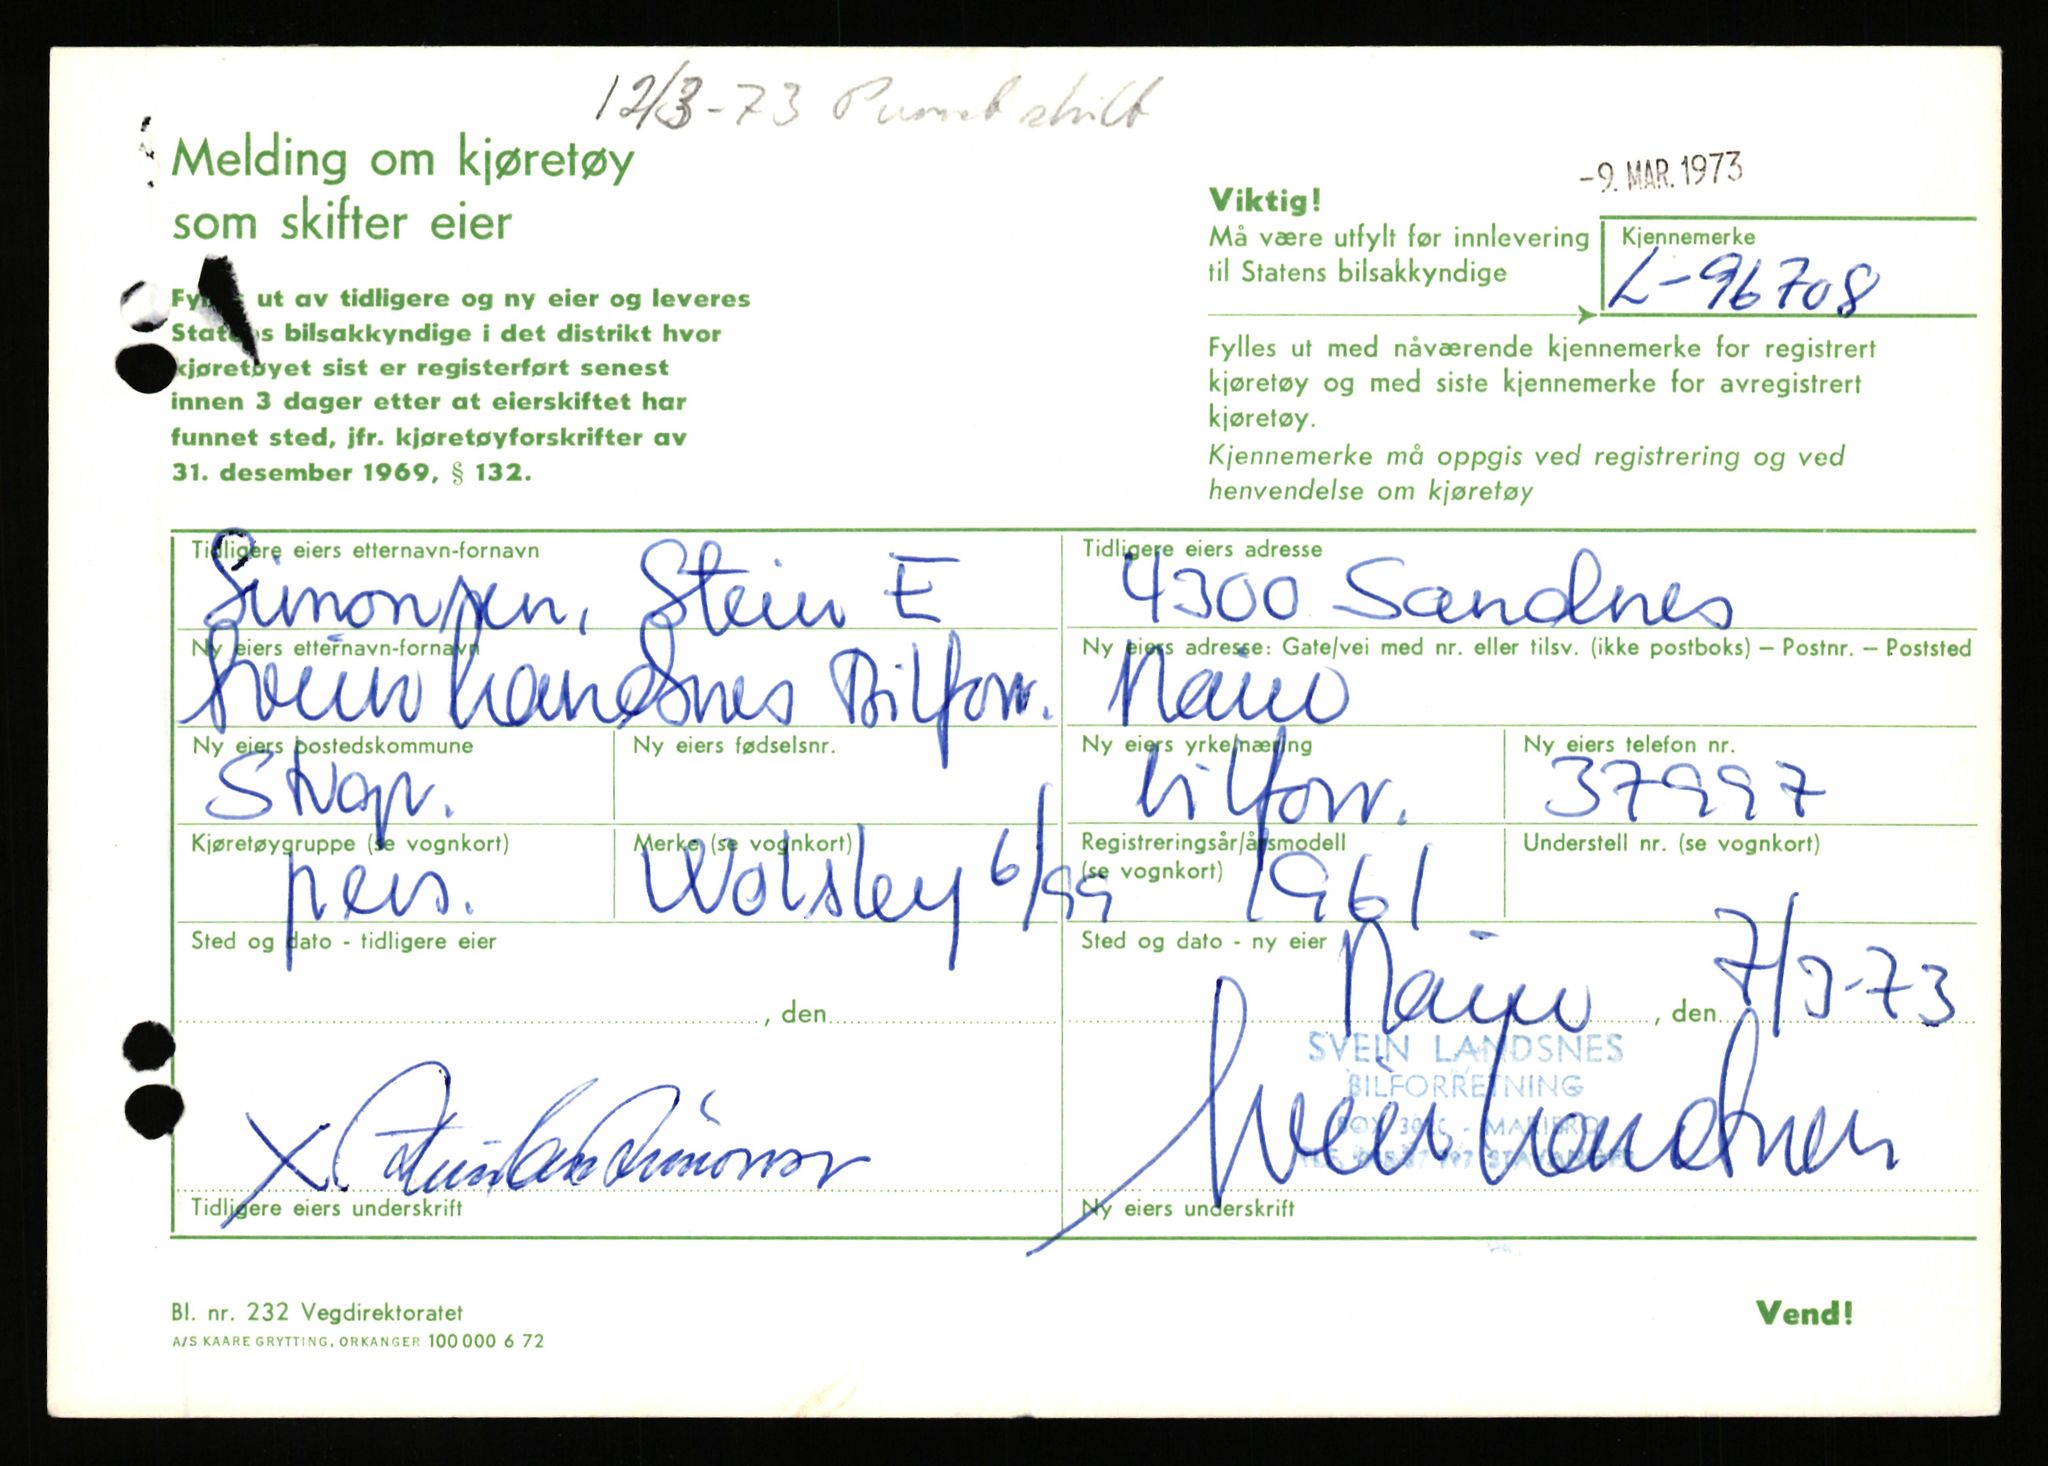 12/3-73 Purret skilt
Melding om kjøretøy
som skifter eier
-9. MAR. 1973
Viktig!
Må være utfylt før innlevering
til Statens bilsakkyndige
Kjennemerke
L-96708
ut av tidligere og ny eier og leveres
Statens bilsakkyndige i det distrikt hvor
kjøretøyet sist er registerført senest
innen 3 dager etter at eierskiftet har
funnet sted, jfr. kjøretøyforskrifter av
31. desember 1969, § 132.
Fylles ut med nåværende kjennemerke for registrert
kjøretøy og med siste kjennemerke for avregistrert
kjøretøy.
Kjennemerke må oppgis ved registrering og ved
henvendelse om kjøretøy
Tidligere eiers etternavn-fornavn
Simonsen, Stein E
Tidligere eiers adresse
4300 Sandnes
Ny eiers etternavn-fornavn
Svein Landsnes Bilforr.
Ny eiers adresse: Gate/vei med nr. eller tilsv. (ikke postboks) – Postnr. – Poststed
Ny eiers bostedskommune
Ny eiers fødselsnr.
Ny eiers yrke/næring
bilforr.
Ny eiers telefon nr.
37997
Kjøretøygruppe (se vognkort)
pers.
Merke (se vognkort)
Wolsley 6/99
Registreringsår/årsmodell
(se vognkort)
1961
Understell nr. (se vognkort)
Sted og dato - tidligere eier
, den
Sted og dato - ny eier
, den 7/3-73
SVEIN LANDSNES
BILFORRETNING
BOX - MARIERO
STAVANGER
X Simonsen
Svein Landsnes
Tidligere eiers underskrift
Ny eiers underskrift
Bl. nr. 232 Vegdirektoratet
A/S KAARE GRYTTING, ORKANGER 100 000 6 72
Vend!